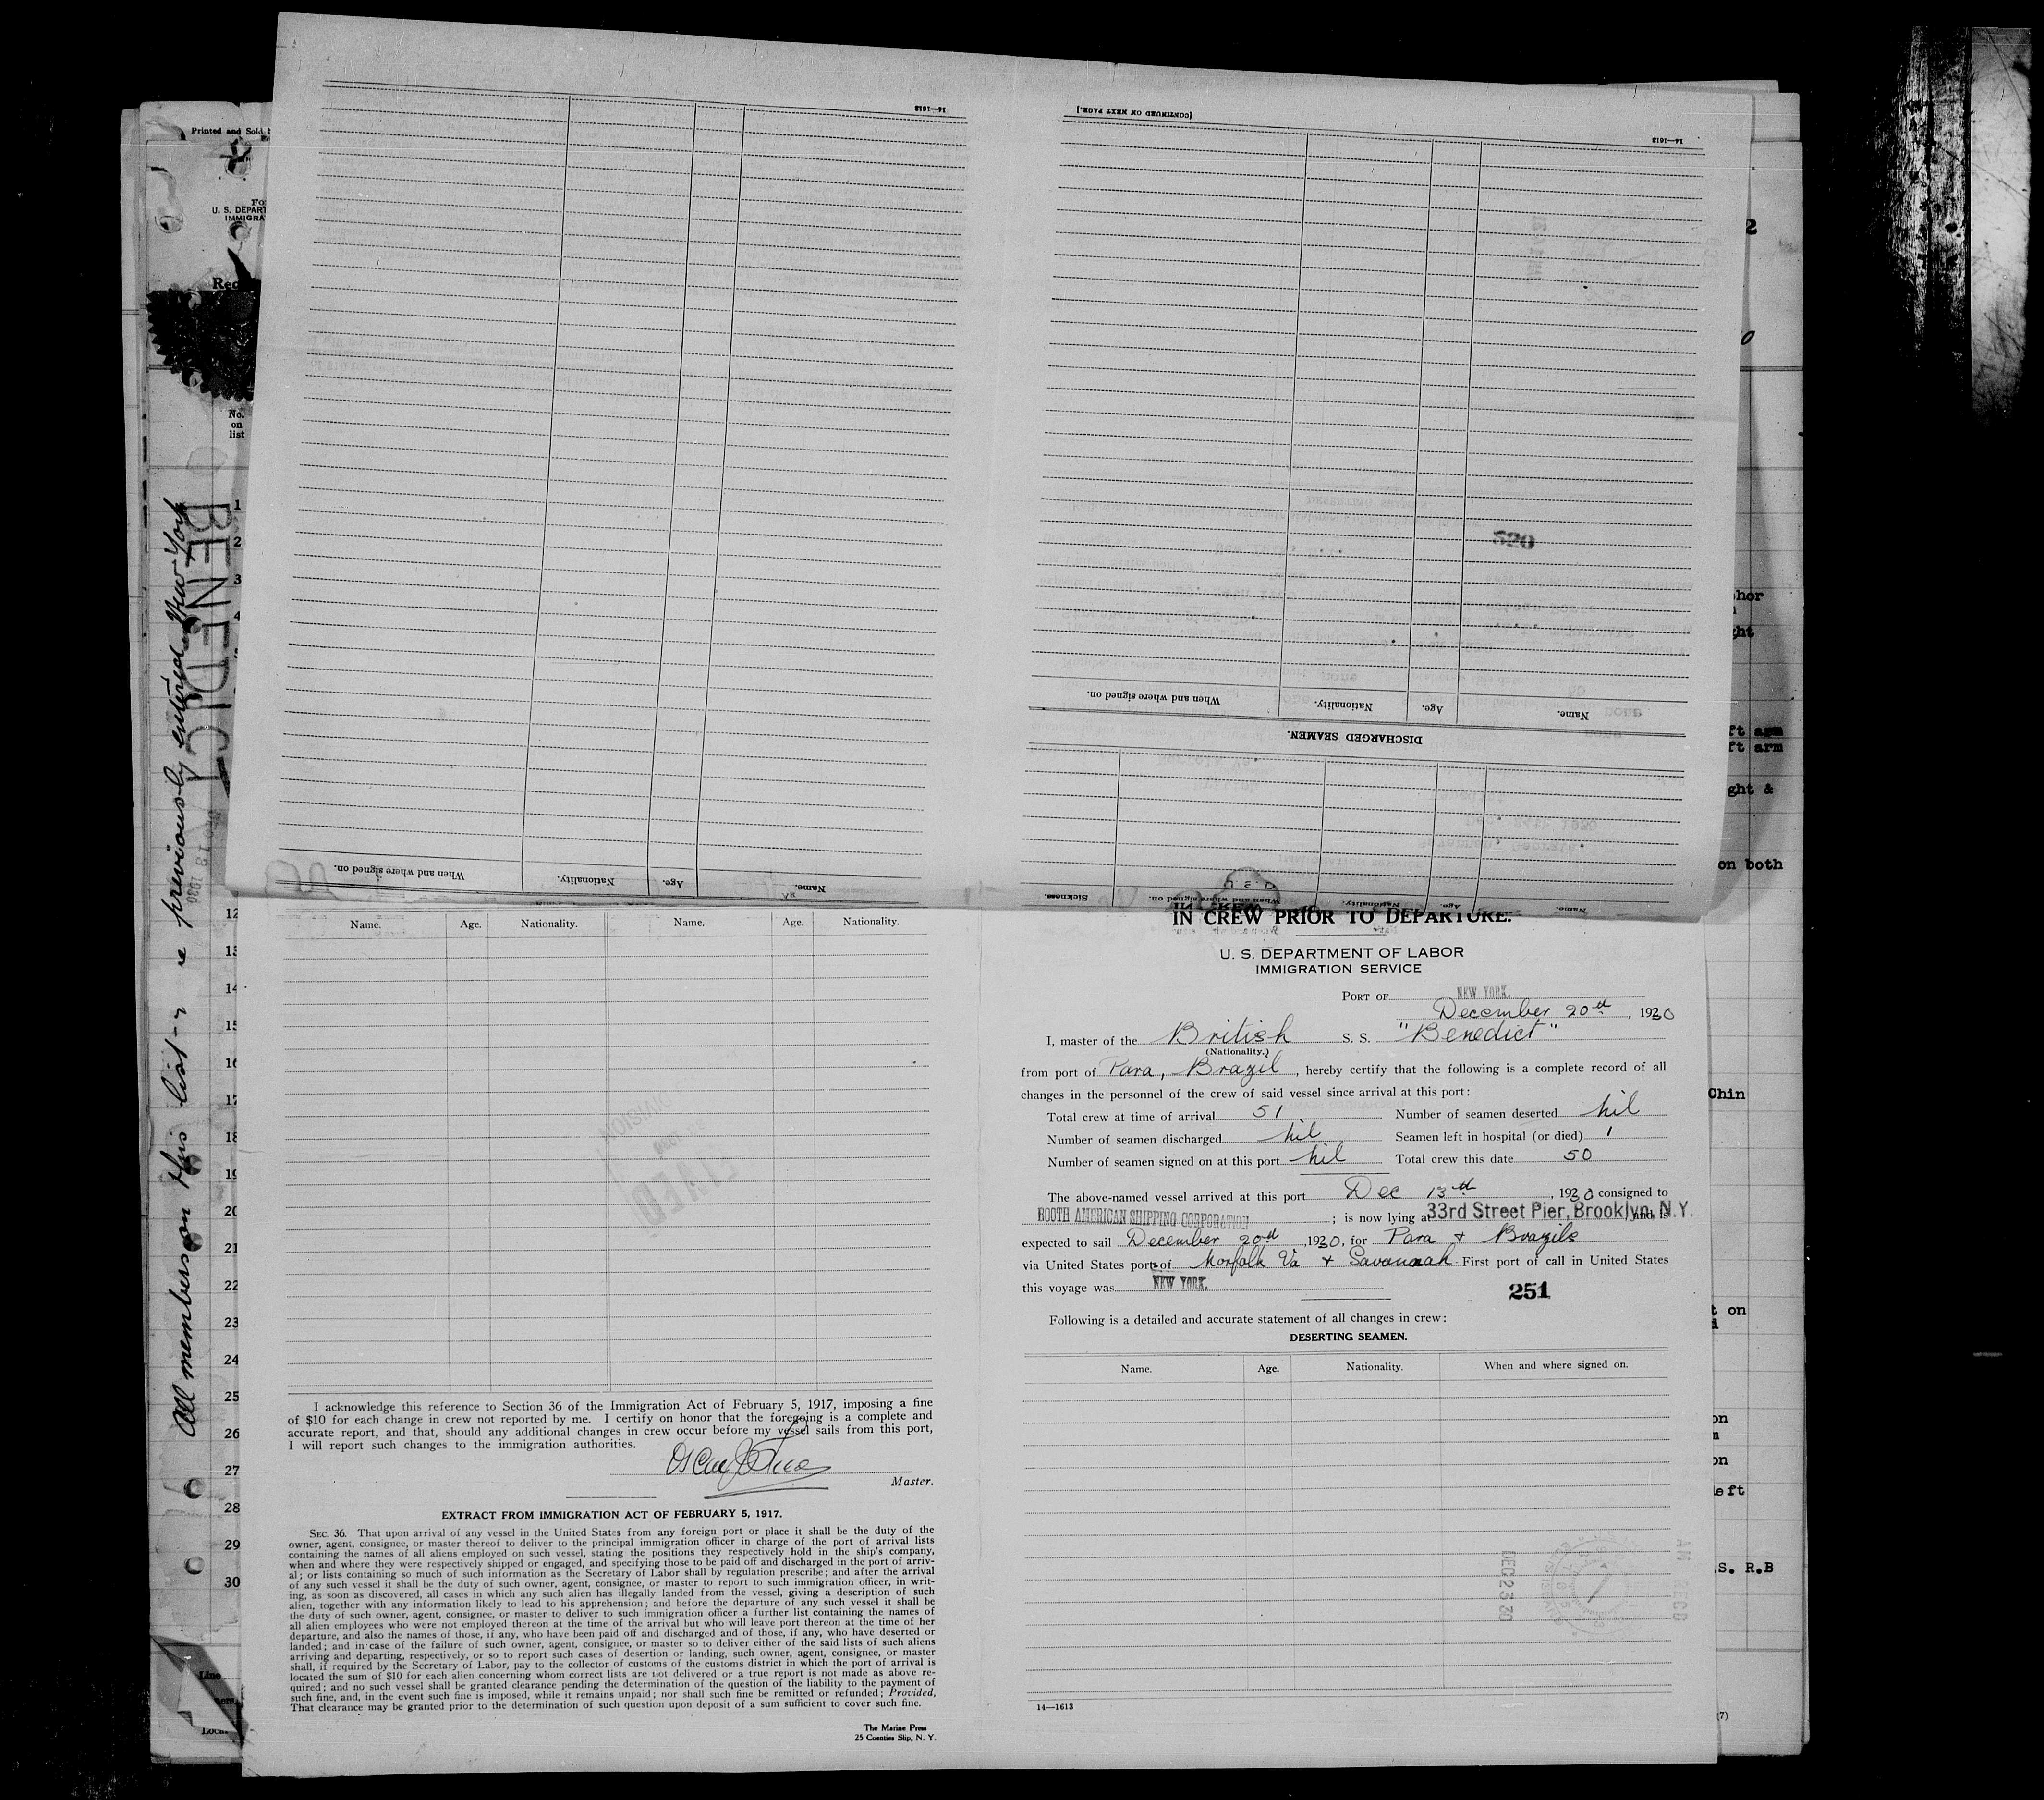 Printed and Sold
U. S. DEPART
IMMIGRA
Rec
No.
on
list
All members on this list - re previously entered New York
BENEDICT
1
2
3
4
12
13
14
15
16
17
18
19
20
21
22
23
24
25
26
27
28
29
30
Line
14—1613
When and where signed on.
Nationality.
Age.
Name.
[CONTINUED ON NEXT PAGE.]
14—1613
520
When and where signed on.
Nationality.
Age.
Name.
DISCHARGED SEAMEN.
Sickness.
When and where signed on.
Nationality.
Age.
Name.
Name. Age. Nationality. Name. Age. Nationality.
I acknowledge this reference to Section 36 of the Immigration Act of February 5, 1917, imposing a fine
of $10 for each change in crew not reported by me. I certify on honor that the foregoing is a complete and
accurate report, and that, should any additional changes in crew occur before my vessel sails from this port,
I will report such changes to the immigration authorities.
Master.
EXTRACT FROM IMMIGRATION ACT OF FEBRUARY 5, 1917.
SEC. 36. That upon arrival of any vessel in the United States from any foreign port or place it shall be the duty of the
owner, agent, consignee, or master thereof to deliver to the principal immigration officer in charge of the port of arrival lists
containing the names of all aliens employed on such vessel, stating the positions they respectively hold in the ship's company,
when and where they were respectively shipped or engaged, and specifying those to be paid off and discharged in the port of arriv-
al; or lists containing so much of such information as the Secretary of Labor shall by regulation prescribe; and after the arrival
of any such vessel it shall be the duty of such owner, agent, consignee, or master to report to such immigration officer, in writ-
ing, as soon as discovered, all cases in which any such alien has illegally landed from the vessel, giving a description of such
alien, together with any information likely to lead to his apprehension; and before the departure of any such vessel it shall be
the duty of such owner, agent, consignee, or master to deliver to such immigration officer a further list containing the names of
all alien employees who were not employed thereon at the time of the arrival but who will leave port thereon at the time of her
departure, and also the names of those, if any, who have been paid off and discharged and of those, if any, who have deserted or
landed; and in case of the failure of such owner, agent, consignee, or master so to deliver either of the said lists of such aliens
arriving and departing, respectively, or so to report such cases of desertion or landing, such owner, agent, consignee, or master
shall, if required by the Secretary of Labor, pay to the collector of customs of the customs district in which the port of arrival is
located the sum of $10 for each alien concerning whom correct lists are not delivered or a true report is not made as above re-
quired; and no such vessel shall be granted clearance pending the determination of the question of the liability to the payment of
such fine, and, in the event such fine is imposed, while it remains unpaid; nor shall such fine be remitted or refunded; Provided,
That clearance may be granted prior to the determination of such question upon deposit of a sum sufficient to cover such fine.
The Marine Press
25 Coenties Slip, N. Y.
IN CREW PRIOR TO DEPARTURE.
U. S. DEPARTMENT OF LABOR
IMMIGRATION SERVICE
PORT OF NEW YORK.
December 20th, 1930
I, master of the British S. S. "Benedict"
(Nationality.)
from port of Para, Brazil, hereby certify that the following is a complete record of all
changes in the personnel of the crew of said vessel since arrival at this port:
Total crew at time of arrival 51 Number of seamen deserted nil
Number of seamen discharged nil Seamen left in hospital (or died) 1
Number of seamen signed on at this port nil Total crew this date 50
The above-named vessel arrived at this port Dec 13th, 1930 consigned to
BOOTH AMERICAN SHIPPING CORPORATION; is now lying at 33rd Street Pier, Brooklyn, N.Y. and is
expected to sail December 20th, 1930, for Para & Brazils
via United States ports of Norfolk Va & Savannah First port of call in United States
this voyage was NEW YORK.
251
Following is a detailed and accurate statement of all changes in crew:
DESERTING SEAMEN.
Name. Age. Nationality. When and where signed on.
DEC 23 30
AM RECD
14—1613
2
0
hor
ght
ft arm
ft arm
ght &
on both
Chin
t on
on
on
left
S. R.B
(7)